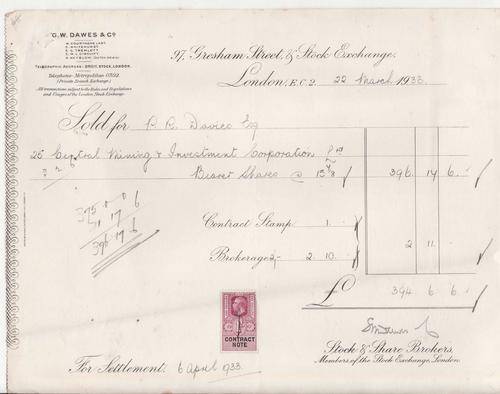 G.W. DAWES & Co.
TELEGRAPHIC ADDRESS:- DROIT, STOCK, LONDON.
Telephone:- Metropolitan 0392.
(Private Branch Exchange.)
All transactions subject to the Rules and Regulations
and Usages of the London Stock Exchange.
97, Gresham Street, & Stock Exchange.
London, E.C.2. 22 March 1933.
Sold for Davies Esq
25 Central Mining & Investment Corporation
Bearer Shares @ 396 . 17 . 6
375 0 0
17 6
396 17 6
Contract Stamp 1 .
Brokerage 2/- 2 . 10 . 2 11 .
£ 394 . 6 . 6
CONTRACT
NOTE
Stock & Share Brokers,
Members of the Stock Exchange, London.
For Settlement. 6 April 1933.